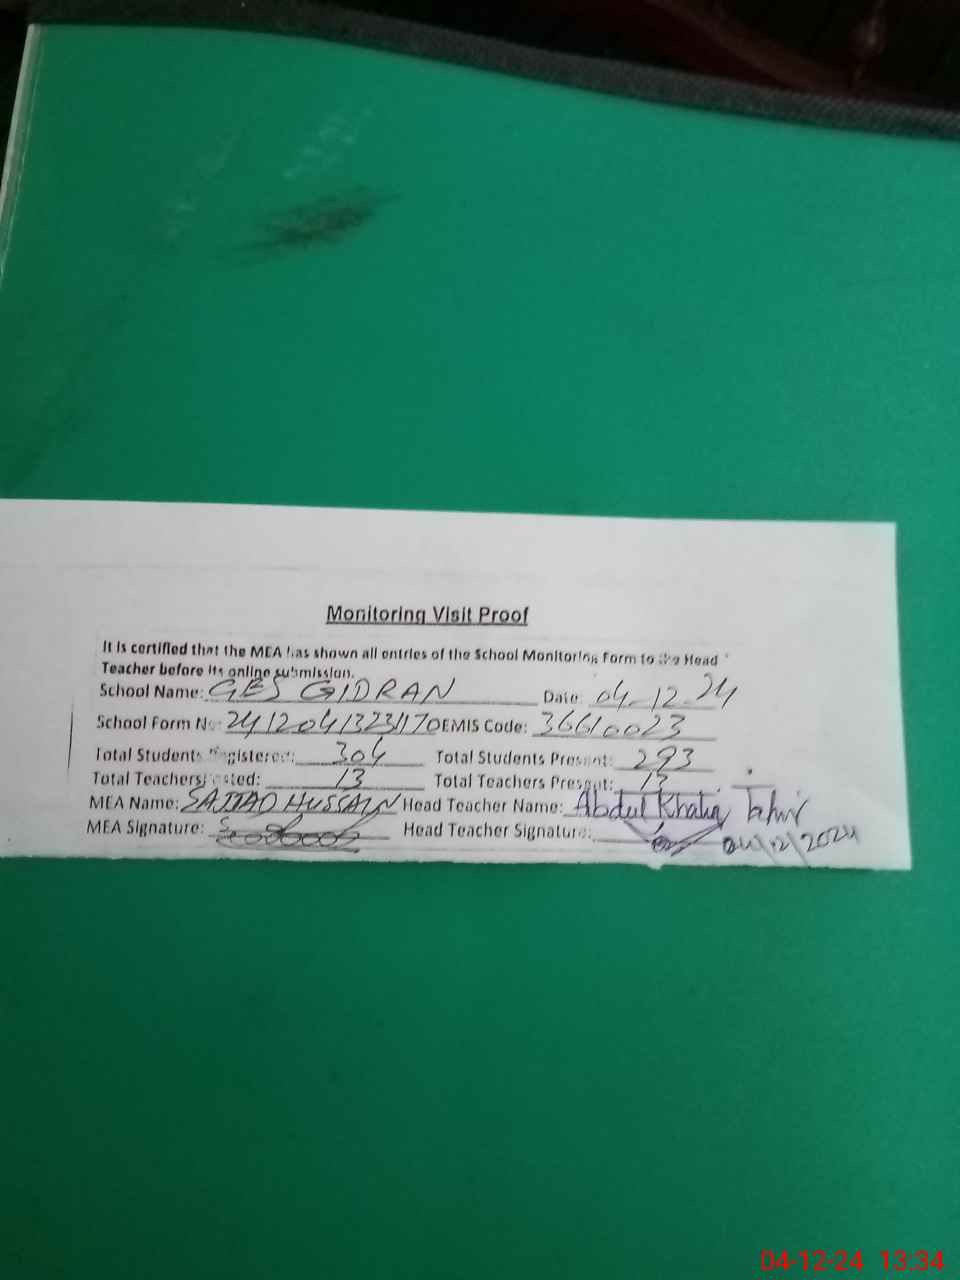 Monitoring Visit Proof
It is certified that the MEA has shown all entries of the School Monitoring Form to the Head
Teacher before its online submission.
School Name: GES GIDRAN Date: 04-12-24
School Form No: 24120413231170 EMIS Code: 36610023
Total Students Registered: 304 Total Students Present: 293
Total Teachers Posted: 13 Total Teachers Present: 13
MEA Name: SAJJAD HUSSAIN Head Teacher Name: Abdul Khaliq Tahir
MEA Signature: Head Teacher Signature: 04/12/2024
04-12-24 13:34